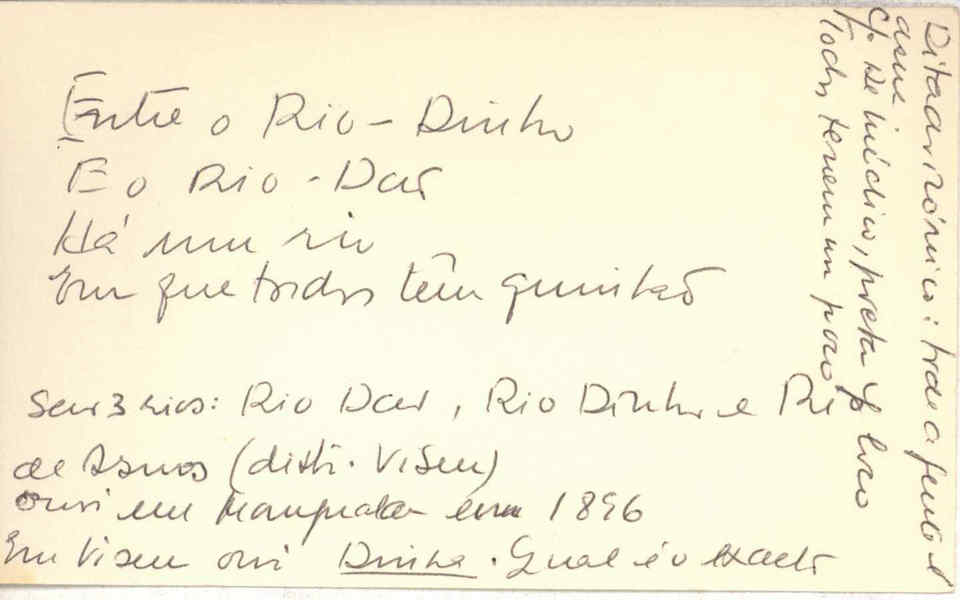 Entre o Rio-Dinho
E o Rio-Dar
Há um rio
Em que todos têm quinhão
Seus 3 rios: Rio Dar, Rio Dinho e Rio
de Asnos (distr. Viseu)
ouvi em Mangualde em 1896
Em Viseu ouvi Dinha. Qual é o exacto
Ditado irónico: toda a gente é
asno
Cf. De médico, poeta e louco
Todos temem um pouco